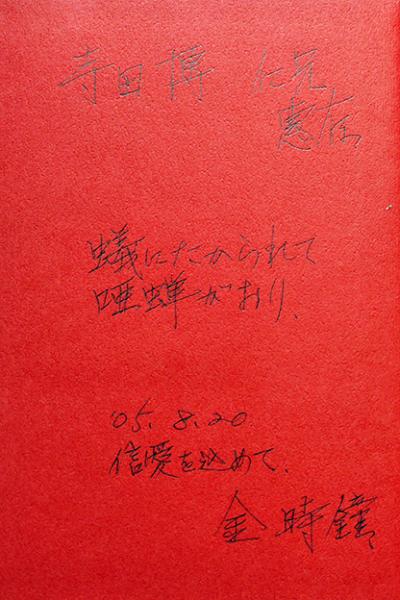 寺田博 仁兄
恵存
蟻にたかられて
唖蝉がおり、
'05.8.20
信愛を込めて、
金時鐘